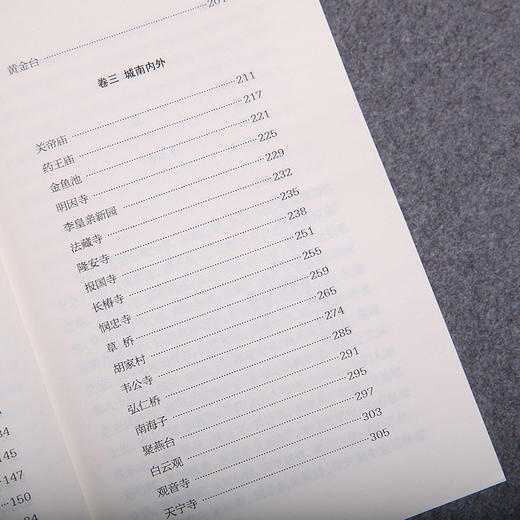 黄金台
卷三 城南内外
关帝庙 211
药王庙 217
金鱼池 221
明因寺 225
李皇亲新园 229
法藏寺 232
隆安寺 235
报国寺 238
长椿寺 251
悯忠寺 255
草 桥 259
胡家村 265
韦公寺 274
弘仁桥 285
南海子 291
聚燕台 295
白云观 297
观音寺 303
天宁寺 305
145
147
150